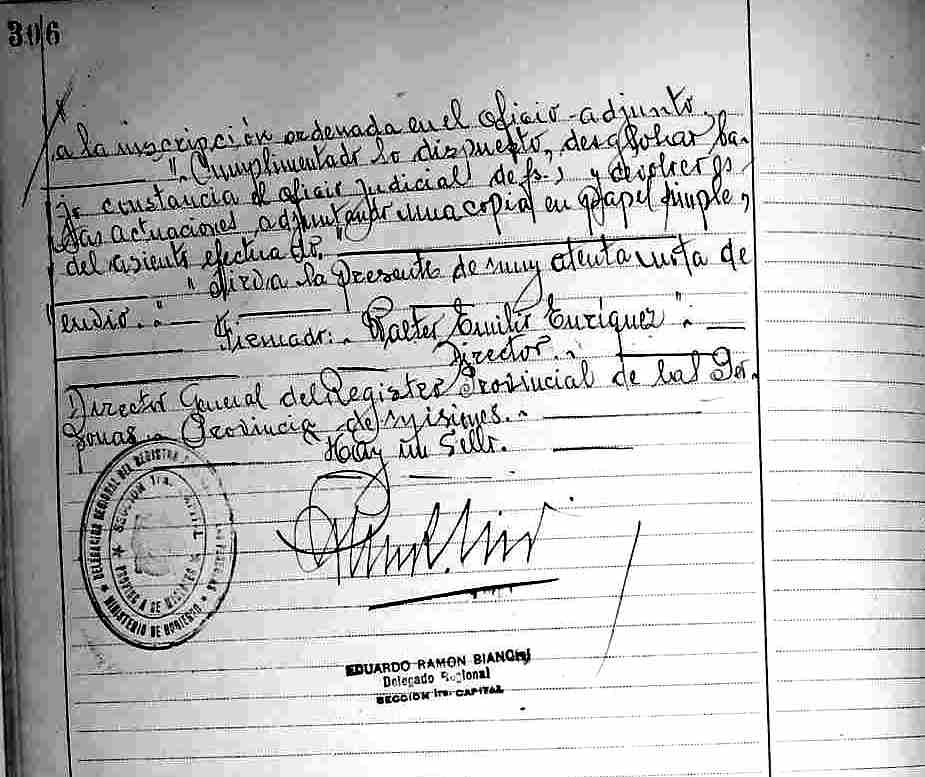 306
a la inscripción ordenada en el oficio adjunto,
". Cumplimentado lo dispuesto, desglosar ba-
jo constancia el oficio judicial de fs. 1 y devolver
las actuaciones adjuntando una copia en papel simple,
del asiento efectuado."
" Sirva la presente de muy atenta nota de
envio."
Firmado:. Walter Emilio Enriquez".
Director..
Director General del Registro Provincial de las Per-
sonas.. Provincia de Misiones..
Hay un Sello.
DELEGACION REGIONAL DEL REGISTRO
SECCION 1ra. CAPITAL
PROVINCIA DE MISIONES
MINISTERIO DE GOBIERNO
EDUARDO RAMON BIANCHI
Delegado Regional
SECCION 1ra. CAPITAL